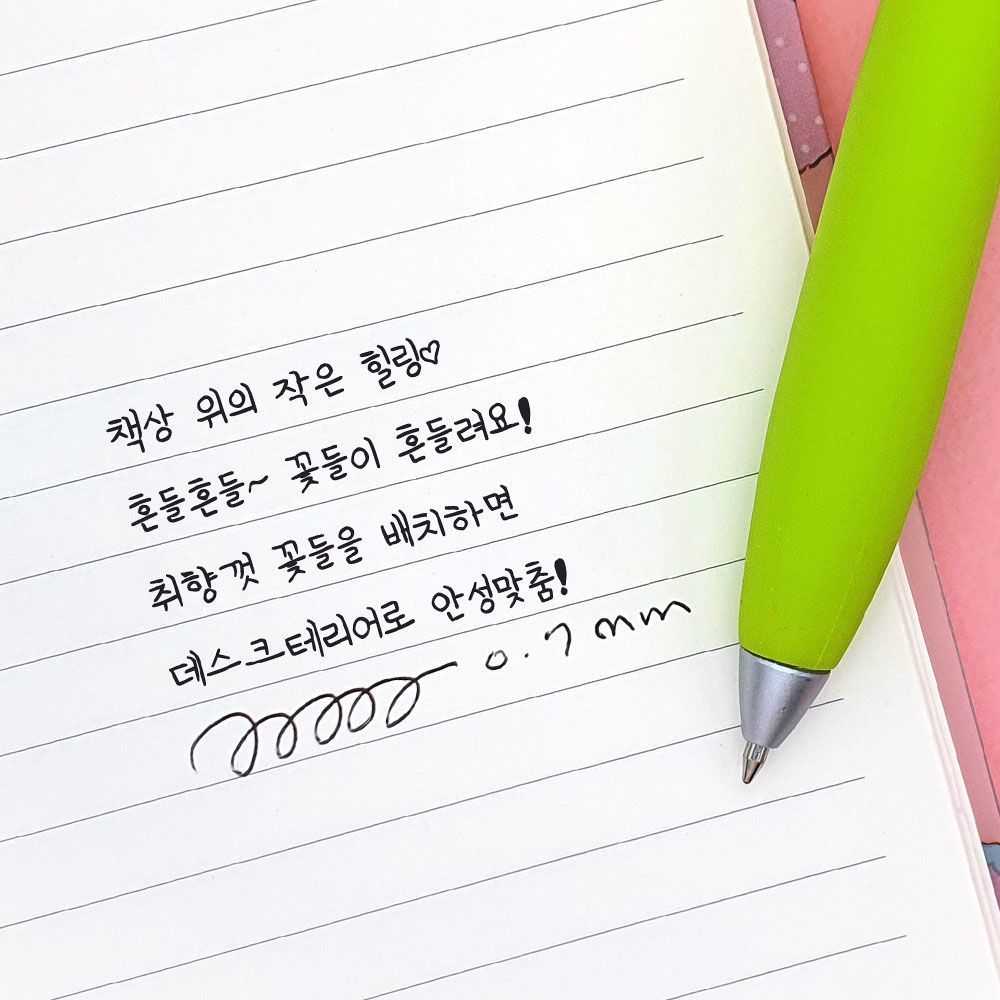 책상 위의 작은 힐링♡
흔들흔들~ 꽃들이 흔들려요!
취향껏 꽃들을 배치하면
데스크테리어로 안성맞춤!
0.7mm